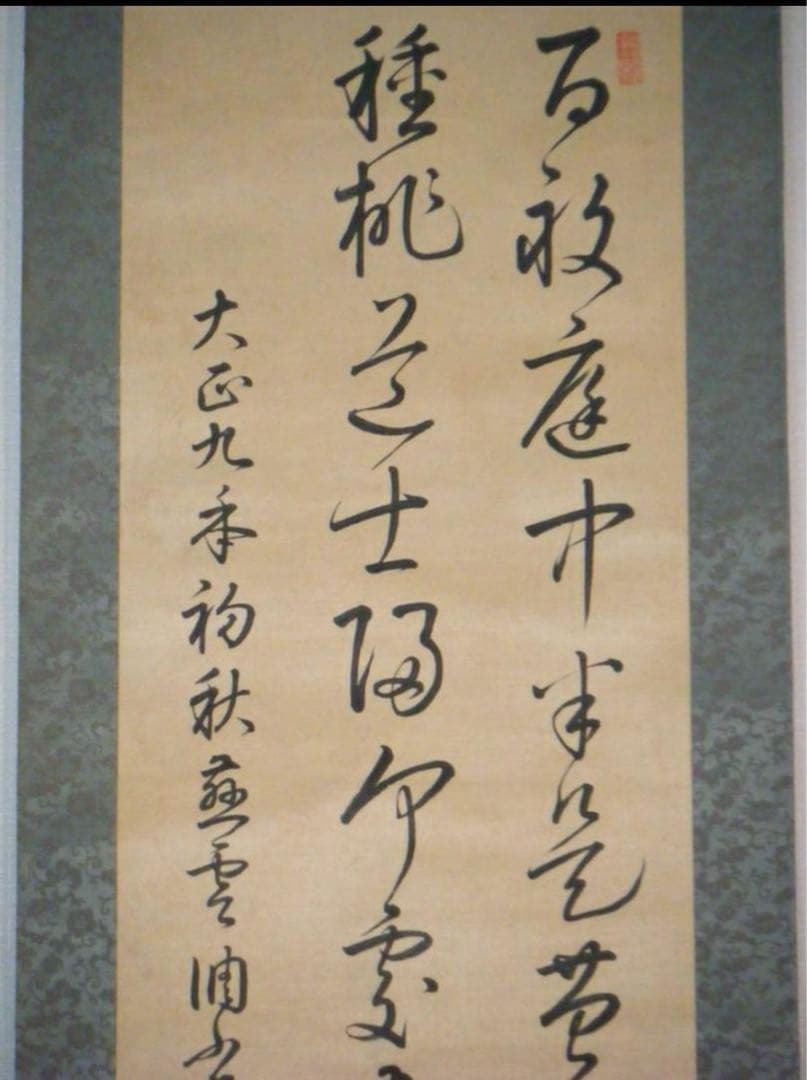 百畝庭中半是苔
種桃道士歸何處
大正九年初秋